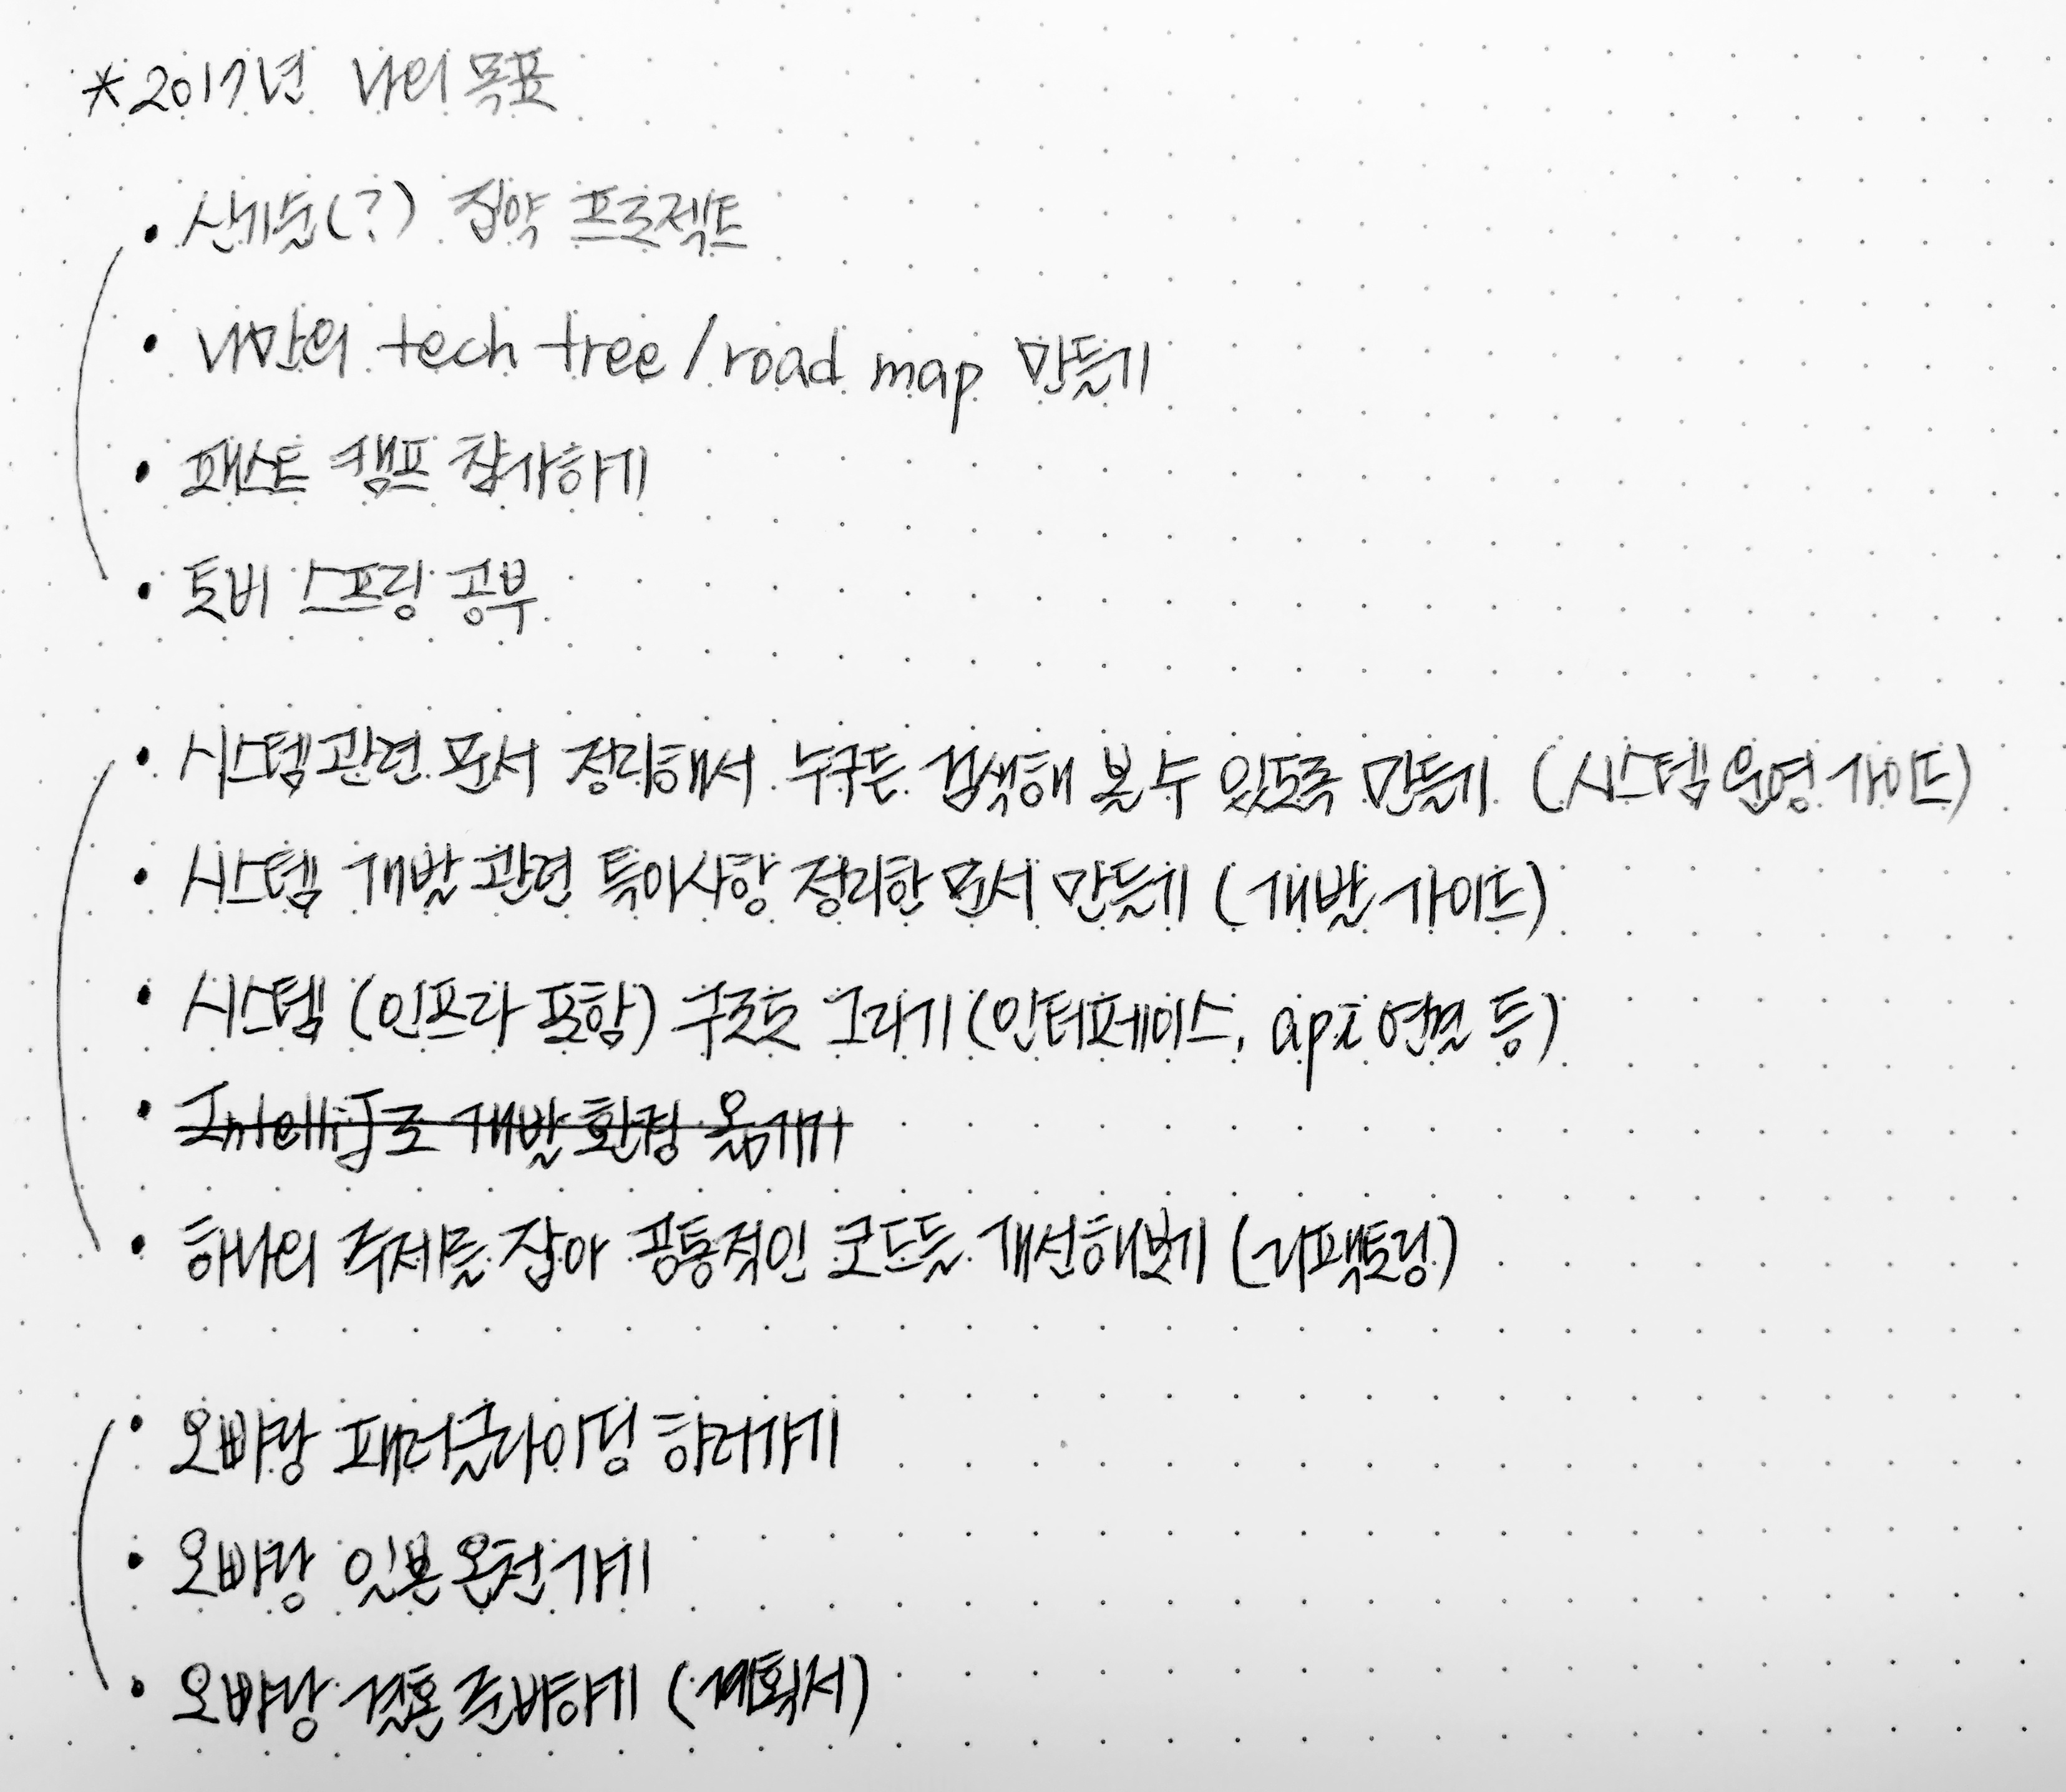 *2017년 나의 목표
• 신기술(?) 집약 프로젝트
• 나만의 tech tree/road map 만들기
• 패스트 캠프 참가하기
• 토비 스프링 공부
• 시스템 관련 문서 정리해서 누구든 검색해 볼 수 있도록 만들기 (시스템 운영 가이드)
• 시스템 개발 관련 특이사항 정리한 문서 만들기 (개발 가이드)
• 시스템 (인프라 포함) 구조도 그리기 (인터페이스, api 연결 등)
• IntelliJ로 개발 환경 옮기기
• 하나의 주제를 잡아 공통적인 코드들 개선해보기 (리팩토링)
• 오빠랑 패러글라이딩 하러가기
• 오빠랑 일본 온천 가기
• 오빠랑 결혼 준비하기 (계획서)